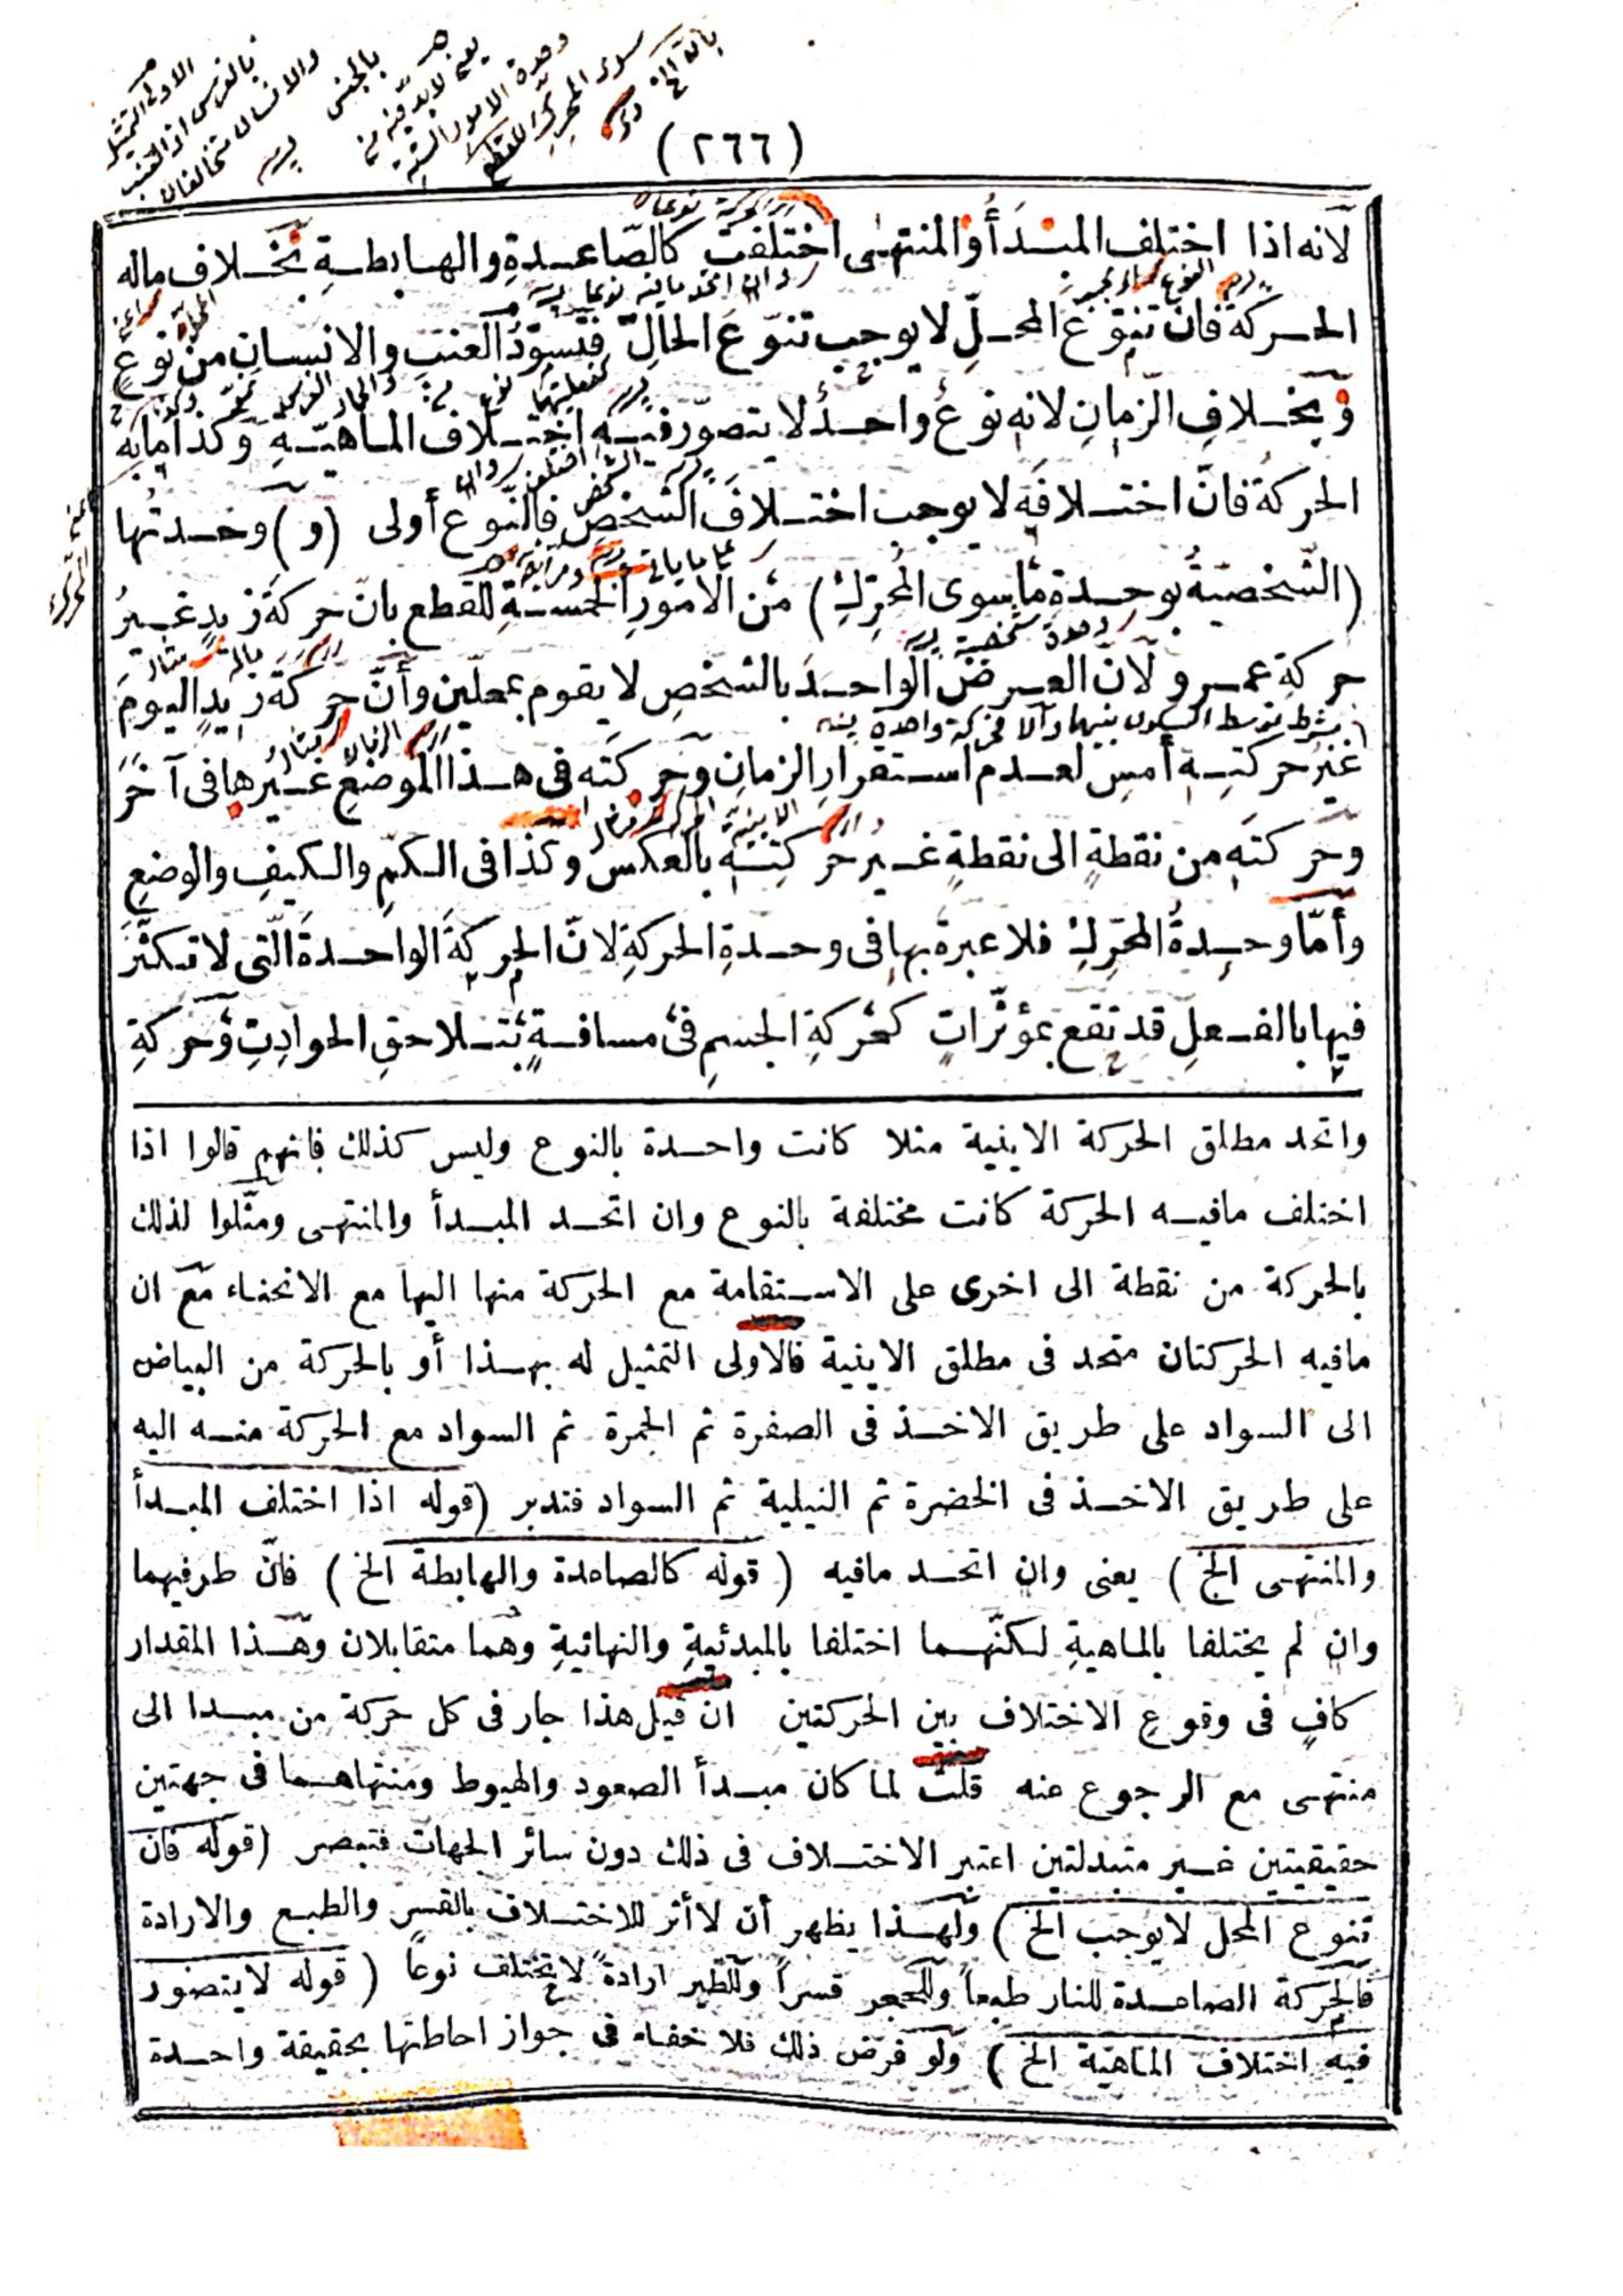 (٢٦٦)
لانه اذا اختلف المبدأ والمنتهى اختلفت كالصاعدة والهابطة بخلاف ماله
الحركة فان تنوّع المحلّ لا يوجب تنوّع الحالّ فتسوّد العنب والانسان من نوع
وبخلاف الزمان لانه نوع واحد لا يتصوّر فيه اختلاف الماهيّة وكذا ما به
الحركة فانّ اختلافه لا يوجب اختلاف الشخص فالنّوع أولى (و) وحدتها
(الشّخصيّة بوحدة ما سوى المحرّك) من الامور الخمسة للقطع بانّ حركة زيد غير
حركة عمرو ولانّ العرض الواحد بالشخص لا يقوم بمحلّين وأنّ حركة زيد اليوم
غير حركته أمس لعدم استقرار الزمان وحركته فى هذا الموضع غيرها فى آخر
وحركته من نقطة الى نقطة غير حركته بالعكس وكذا فى الكمّ والكيف والوضع
وأمّا وحدة المحرّك فلا عبرة بها فى وحدة الحركة لانّ الحركة الواحدة الّتى لا تكثّر
فيها بالفعل قد تقع بمؤثّرات كحركة الجسم فى مسافة بتلاحق الحوادث وحركة
واتحد مطلق الحركة الاينية مثلا كانت واحدة بالنوع وليس كذلك فانهم قالوا اذا
اختلف مافيه الحركة كانت مختلفة بالنوع وان اتحد المبدأ والمنتهى ومثّلوا لذلك
بالحركة من نقطة الى اخرى على الاستقامة مع الحركة منها اليها مع الانحناء مع ان
مافيه الحركتان متحد فى مطلق الاينية فالاولى التمثيل له بهذا أو بالحركة من البياض
الى السواد على طريق الاخذ فى الصفرة ثم الحمرة ثم السواد مع الحركة منه اليه
على طريق الاخذ فى الخضرة ثم النيلية ثم السواد فتدبر (قوله اذا اختلف المبدأ
والمنتهى الخ) يعنى وان اتحد مافيه (قوله كالصاعدة والهابطة الخ) فانّ طرفيهما
وان لم يختلفا بالماهية لكنّهما اختلفا بالمبدئية والنهائية وهما متقابلان وهذا المقدار
كافٍ فى وقوع الاختلاف بين الحركتين ان قيل هذا جار فى كل حركة من مبدا الى
منتهى مع الرجوع عنه قلت لما كان مبدأ الصعود والهبوط ومنتهاهما فى جهتين
حقيقيتين غير متبدلتين اعتبر الاختلاف فى ذلك دون سائر الجهات فتبصر (قوله فان
تنوع المحل لا يوجب الخ) ولهذا يظهر أن لا أثر للاختلاف بالقسر والطبع والارادة
فالحركة الصاعدة للنار طبعاً وللحجر قسراً وللطير ارادةً لا تختلف نوعاً (قوله لا يتصور
فيه اختلاف الماهية الخ) ولو فرض ذلك فلا خفاء فى جواز احاطتها بحقيقة واحدة